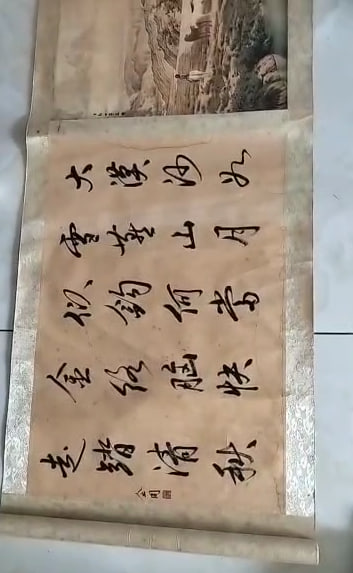 大漠沙如
雪燕山月
似鈎何當
金络脑快
走踏清秋